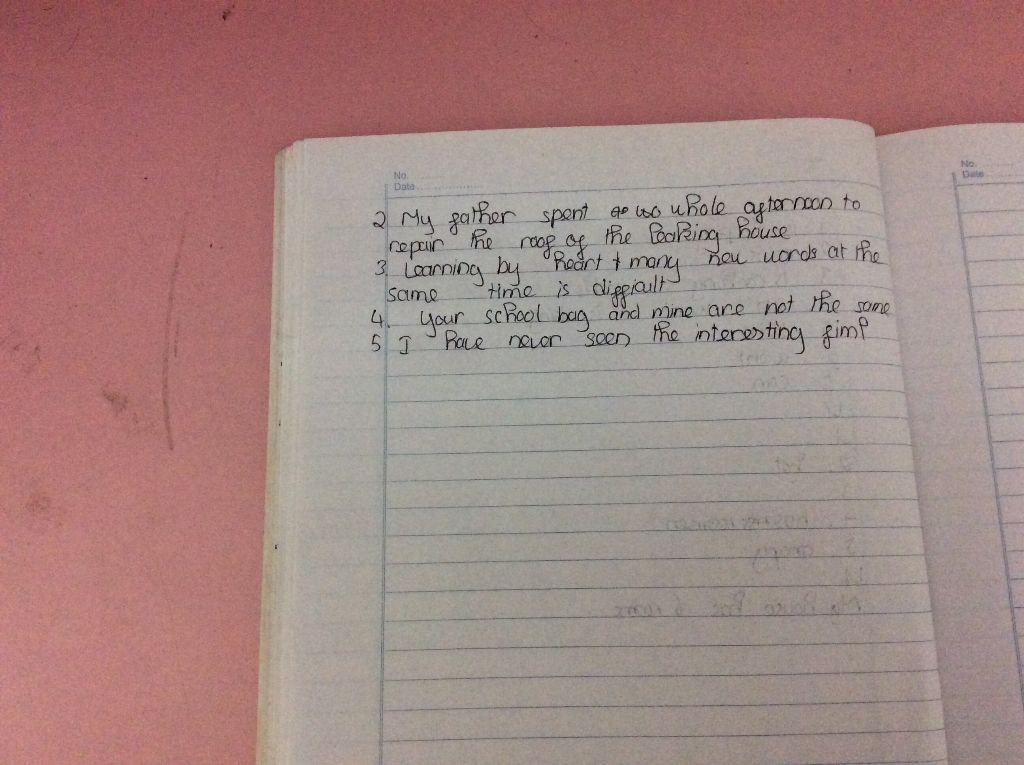 No.
Date
2 My father spent whole afternoon to
repair the roof of the leaking house
3 Learning by heart many new words at the
same time is difficult
4. Your school bag and mine are not the same
5 I have never seen the interesting fiml
No.
Date